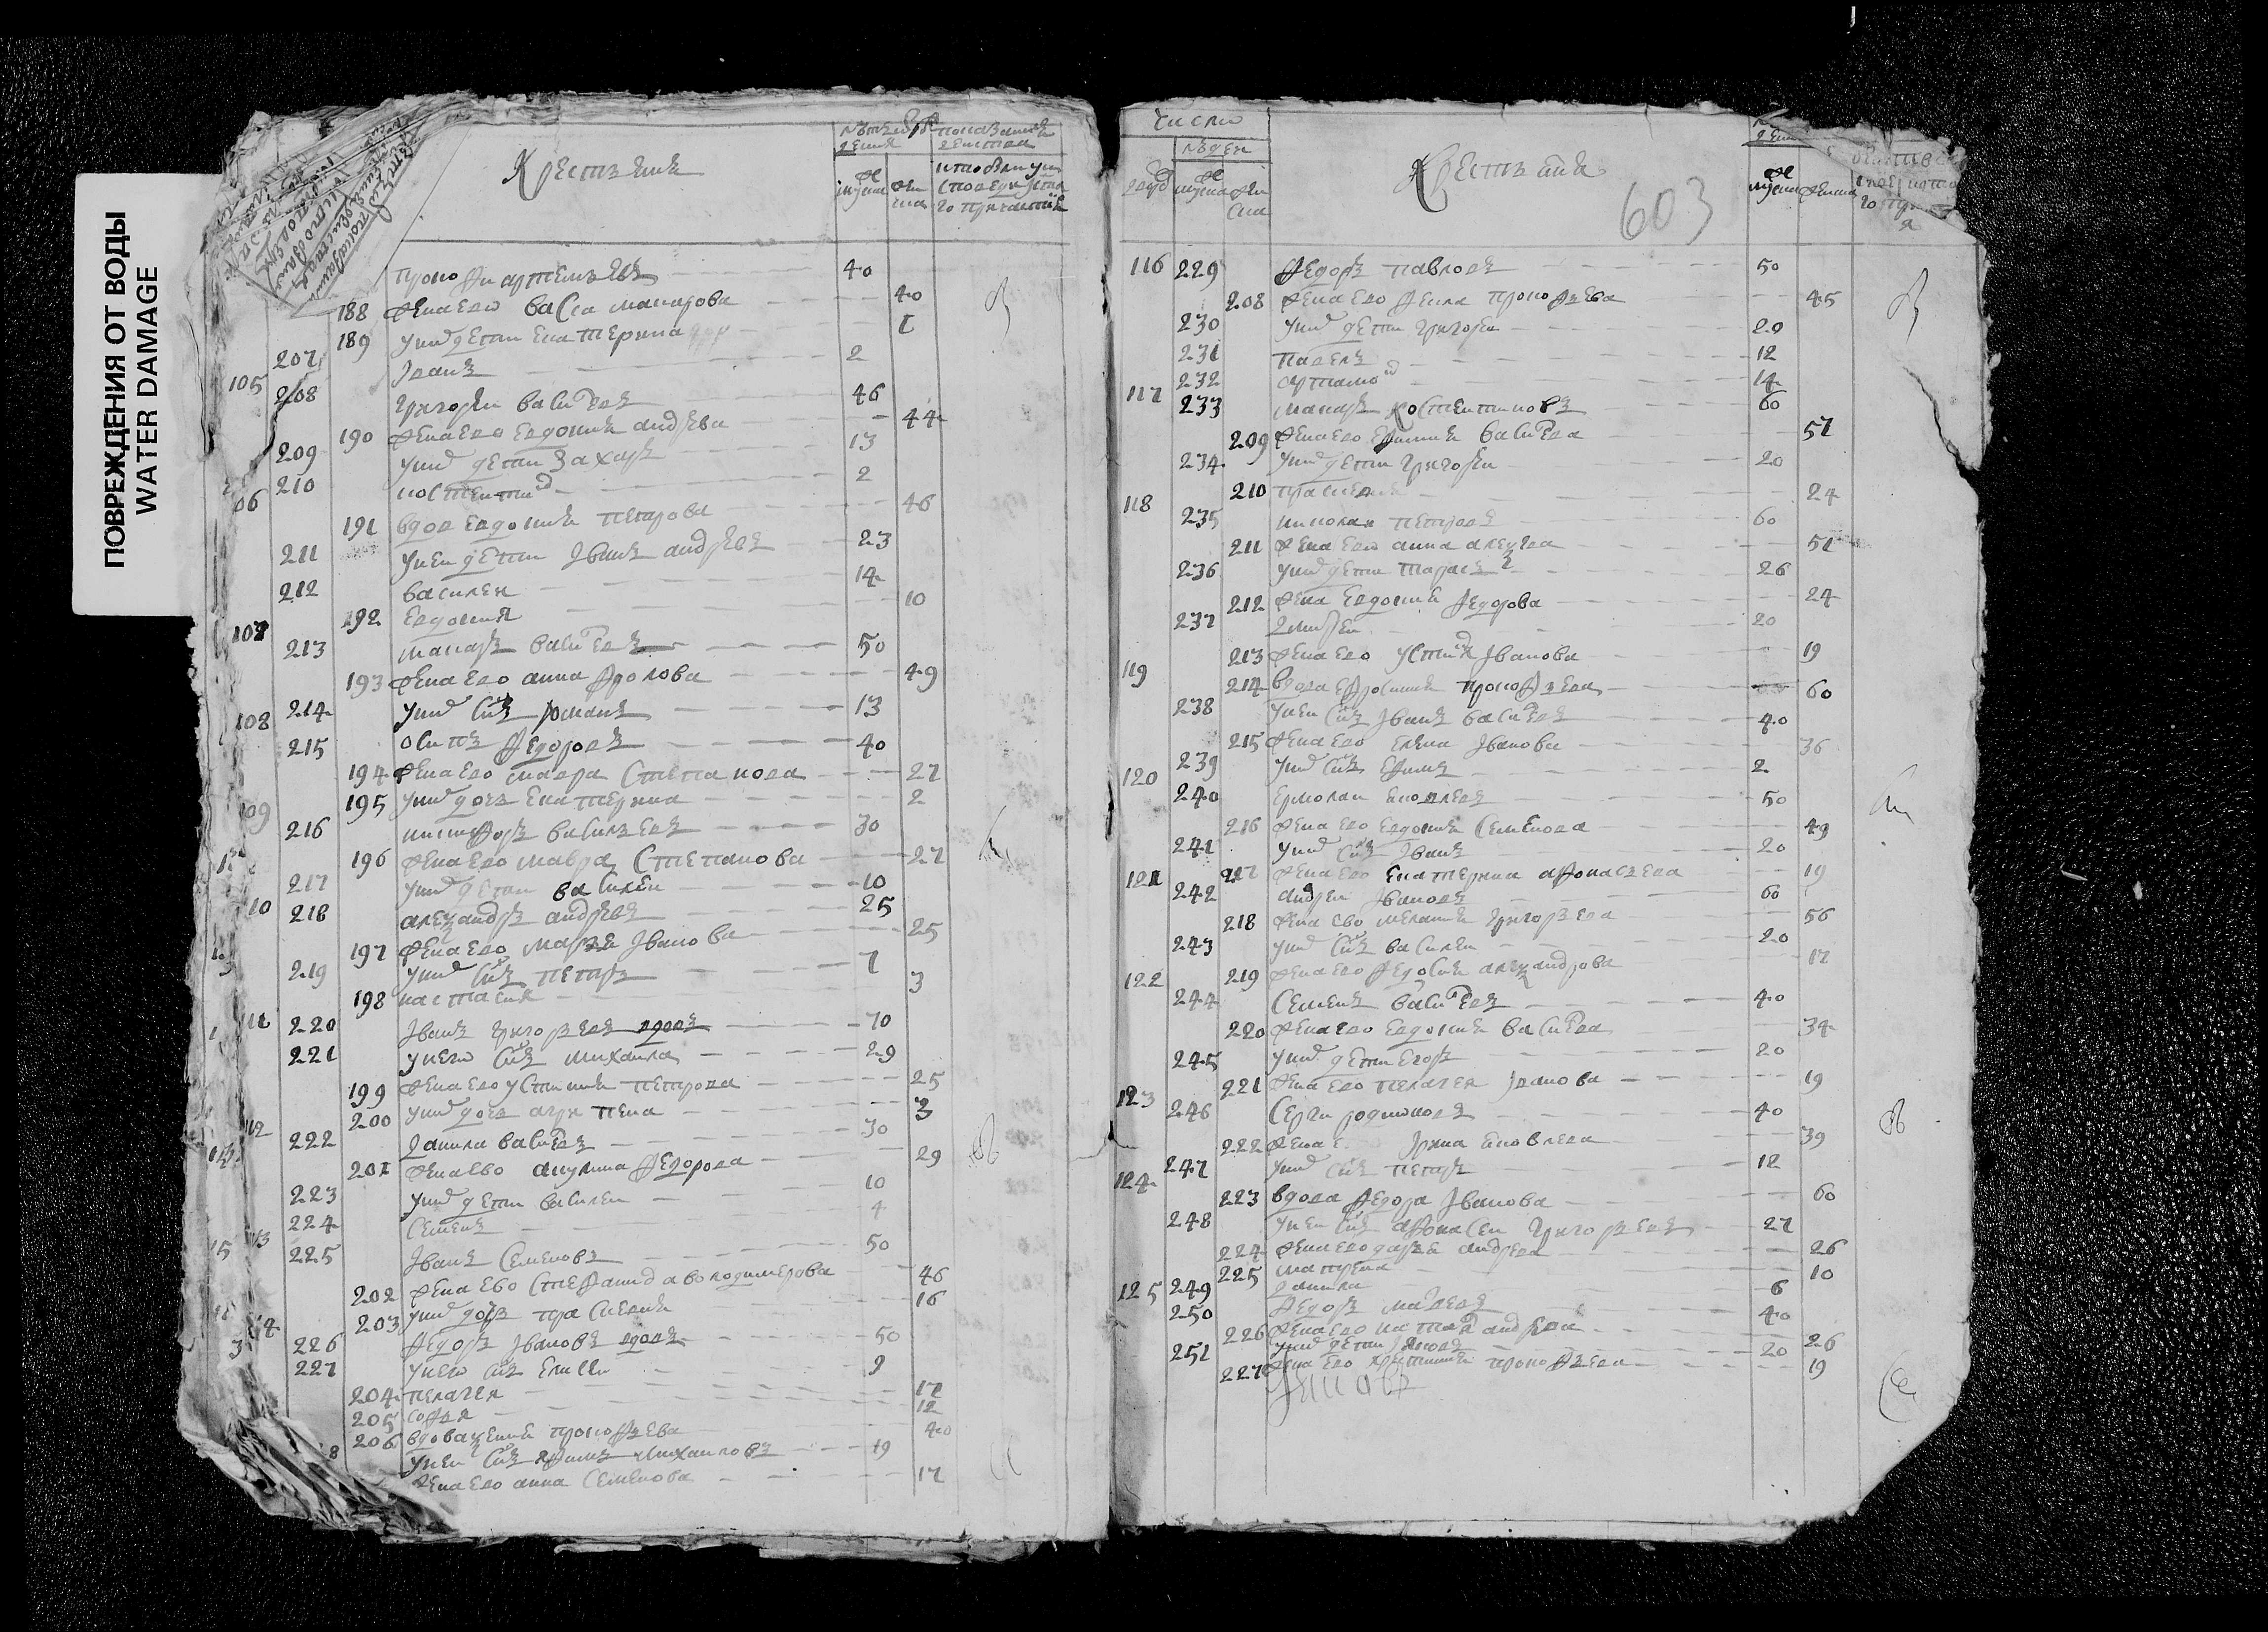 ПОВРЕЖДЕНИЯ ОТ ВОДЫ
WATER DAMAGE
Крестьяня
мужеска
женска
прокофи артемьевъ 40
188 жена ево васса макарова 40
189 у них дети екатерина 1
207 Іванъ 2
105 208 григорей васильевъ 46
190 жена ево евдокия андреева 44
209 у них дети захаръ 13
210 костентин 2
06 191 вдова евдокия петрова 46
211 у неи дети Іванъ андреевъ 23
212 василеи 14
192 евдокия 10
107 213 макаръ васильевъ 50
193 жена ево анна фролова 49
214 у них сынъ романъ 13
108 215 осипъ федоровъ 40
194 жена ево мавра степанова 27
195 у них дочь екатерина 2
109 216 никифоръ васильевъ 30
196 жена ево мавра степанова 27
217 у них дети василеи 10
10 218 александръ андреевъ 25
197 жена ево марья Іванова 25
219 у них сынъ петръ 7
198 настасия 3
111 220 Іванъ григорьевъ вдовъ 70
221 у него сынъ михаила 29
199 жена ево устиния петрова 25
200 у них дочь агрипена 3
112 222 данила васильевъ 30
201 жена ево акулина федорова 29
223 у них дети василеи 10
224 семенъ 4
13 225 Іванъ семеновъ 50
202 жена ево стефанида володимерова 46
203 у них дочь прасковия 16
14 226 федоръ Івановъ вдовъ 50
227 у него сынъ елисеи 9
204 пелагея 17
205 софья 12
206 вдова ксения прокофьева 40
8 у неи сынъ ефимъ михаиловъ 19
жена ево анна семенова 17
число
людеи
двор мужеска женска
Крестьяня
603
мужеска женска
116 229 федоръ павловъ 50
208 жена ево фекла прокофьева 45
230 у них дети григореи 20
231 павелъ 12
232 артамон 14
117 233 макаръ костентиновъ 60
209 жена ево ефимия васильева 57
234 у них дети григореи 20
210 прасковия 24
118 235 николаи петровъ 60
211 жена ево анна алексеева 51
236 у них дети тарасъ 26
212 жена евдокия федорова 24
237 дмитреи 20
213 жена ево устиния Іванова 19
119 214 вдова ефросиния прокофьева 60
238 у неи сынъ Іванъ васильевъ 40
215 жена ево елена Іванова 36
239 у них сынъ ефимъ 2
120 240 ермолаи яковлевъ 50
216 жена ево евдокия семенова 49
241 у них сынъ Іванъ 20
217 жена ево екатерина афонасьева 19
121 242 андреи Івановъ 60
218 жена ево мелания григорьева 56
243 у них сынъ василеи 20
219 жена ево федосия александрова 17
122 244 семенъ васильевъ 40
220 жена ево евдокия васильева 34
245 у них дети егоръ 20
221 жена ево пелагея Іванова 19
123 246 сергеи родионовъ 40
222 жена Ірина яковлева 39
247 у них сынъ петръ 12
124 223 вдова федора Іванова 60
248 у неи сынъ афонасеи григорьевъ 27
224 жена ево дарья андреева 26
225 матрена 10
249 данила 6
125 250 федоръ 40
226 жена ево наталия андреева 26
251 у них дети Яковъ 20
227 жена ево прокофьева 19